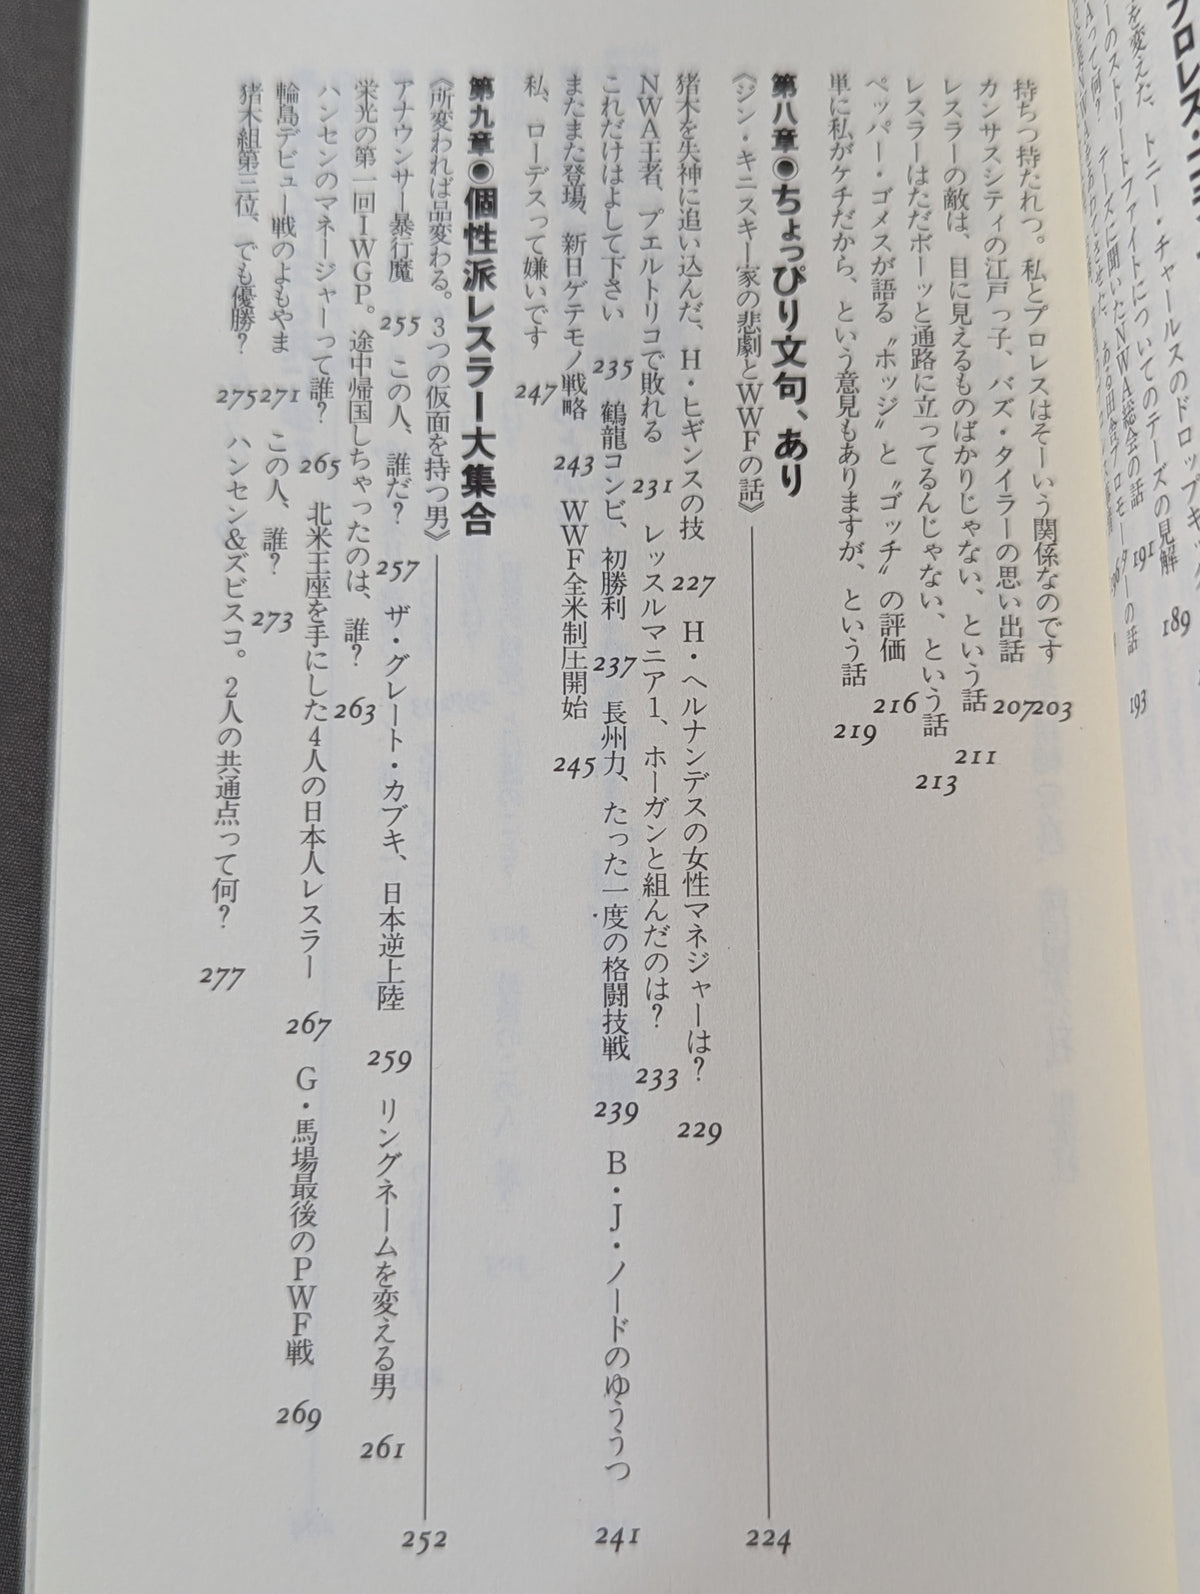 を変えた、トニー・チャールスのドロップキック 189
ーのストリートファイトについてのテーズの見解 191
って何? テーズに聞いたNWA総会の話 193
持ちつ持たれつ。私とプロレスはそーいう関係なのです 203
カンサスシティの江戸っ子、バズ・タイラーの思い出話 207
レスラーの敵は、目に見えるものばかりじゃない、という話 211
レスラーはただボーッと通路に立ってるんじゃない、という話 213
ペッパー・ゴメスが語る〝ホッジ〟と〝ゴッチ〟の評価 216
単に私がケチだから、という意見もありますが、という話 219
第八章●ちょっぴり文句、あり
《ジン・キニスキー家の悲劇とWWFの話》 224
猪木を失神に追い込んだ、H・ヒギンスの技 227 H・ヘルナンデスの女性マネジャーは? 229
NWA王者、プエルトリコで敗れる 231 レッスルマニア1、ホーガンと組んだのは? 233
これだけはよして下さい 235 鶴龍コンビ、初勝利 237 長州力、たった一度の格闘技戦 239 B・J・ノードのゆううつ 241
またまた登場、新日ゲテモノ戦略 243 WWF全米制圧開始 245
私、ローデスって嫌いです 247
第九章●個性派レスラー大集合
《所変われば品変わる。3つの仮面を持つ男》 252
アナウンサー暴行魔 255 この人、誰だ? 257 ザ・グレート・カブキ、日本逆上陸 259 リングネームを変える男 261
栄光の第一回IWGP。途中帰国しちゃったのは、誰? 263
ハンセンのマネージャーって誰? 265 北米王座を手にした4人の日本人レスラー 267 G・馬場最後のPWF戦 269
輪島デビュー戦のよもやま 271 この人、誰? 273
猪木組第三位、でも優勝? 275 ハンセン&ズビスコ。2人の共通点って何? 277